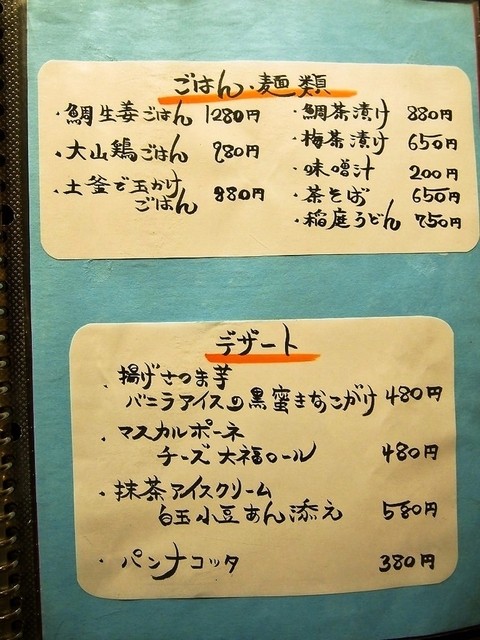 ごはん・麺類
・鯛生姜ごはん 1280円
・大山鶏ごはん 980円
・土釜で玉かけ
ごはん 880円
・鯛茶漬け 880円
・梅茶漬け 650円
・味噌汁 200円
・茶そば 650円
・稲庭うどん 750円
デザート
・揚げさつま芋
バニラアイスの黒蜜きなこがけ 480円
・マスカルポーネ
チーズ大福ロール 480円
・抹茶アイスクリーム
白玉小豆あん添え 580円
・パンナコッタ 380円